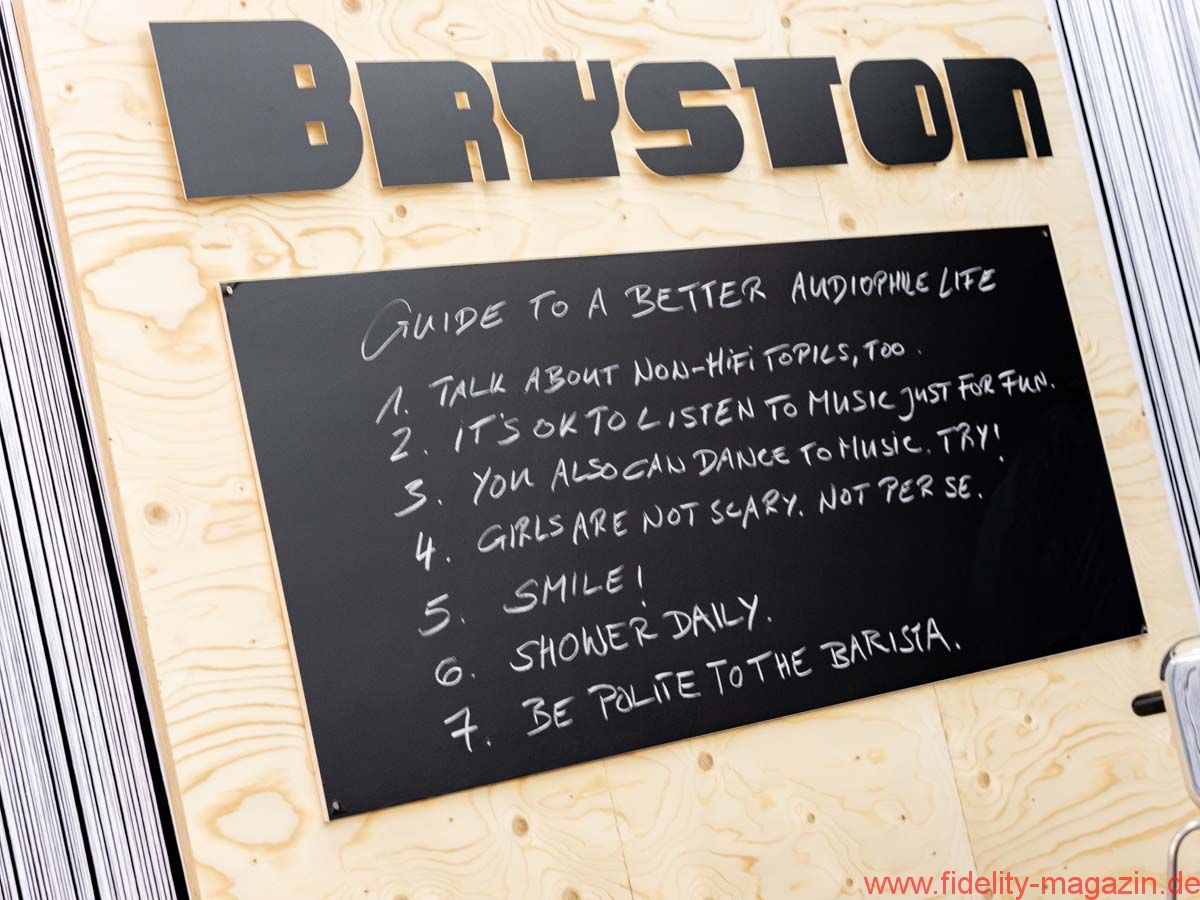 BRYSTON
GUIDE TO A BETTER AUDIOPHILE LIFE
1. TALK ABOUT NON-HIFI TOPICS, TOO.
2. IT'S OK TO LISTEN TO MUSIC JUST FOR FUN.
3. YOU ALSO CAN DANCE TO MUSIC. TRY!
4. GIRLS ARE NOT SCARY. NOT PER SE.
5. SMILE!
6. SHOWER DAILY.
7. BE POLITE TO THE BARISTA.
www.fidelity-magazin.de